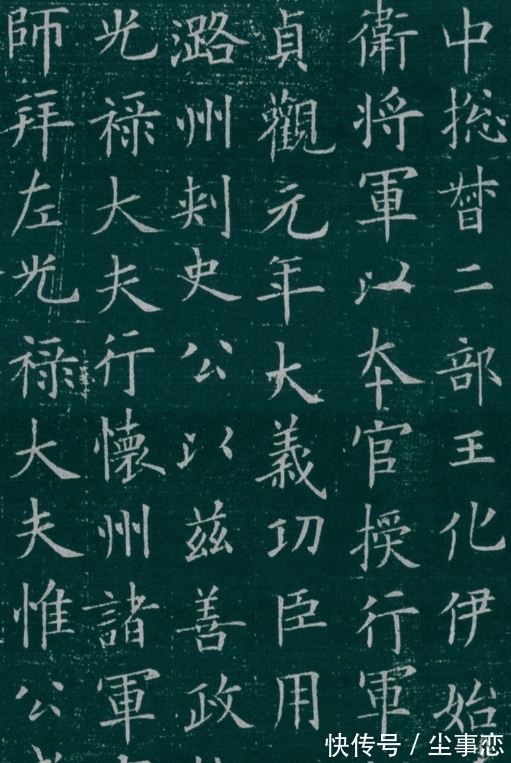 中揔督二部王化伊始
衛将軍以本官授行軍
貞觀元年大義功臣用
潞州刺史公以兹善政
光禄大夫行懷州諸軍
師拜左光禄大夫惟公
快传号 / 尘事恋